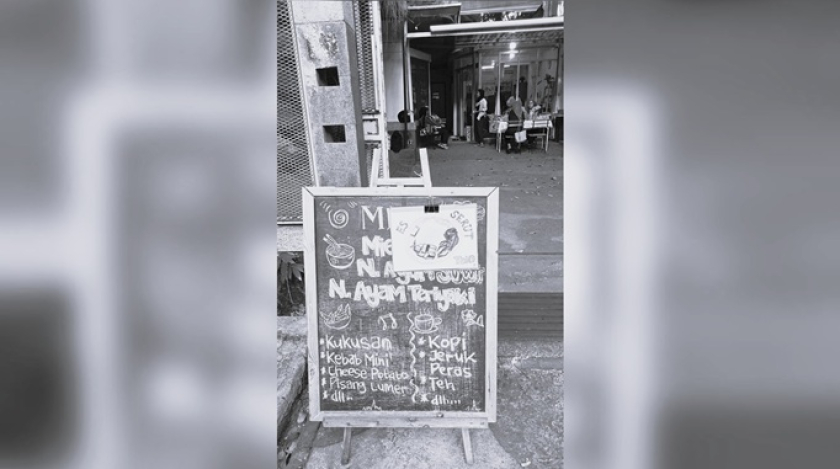 SERUT
Mie
N. Ayam Suwir
N. Ayam Teriyaki
* Kukusan
* Kebab Mini
* Cheese Potato
* Pisang Lumer
* dll...
* Kopi
* Jeruk
Peras
* Teh
* dll....